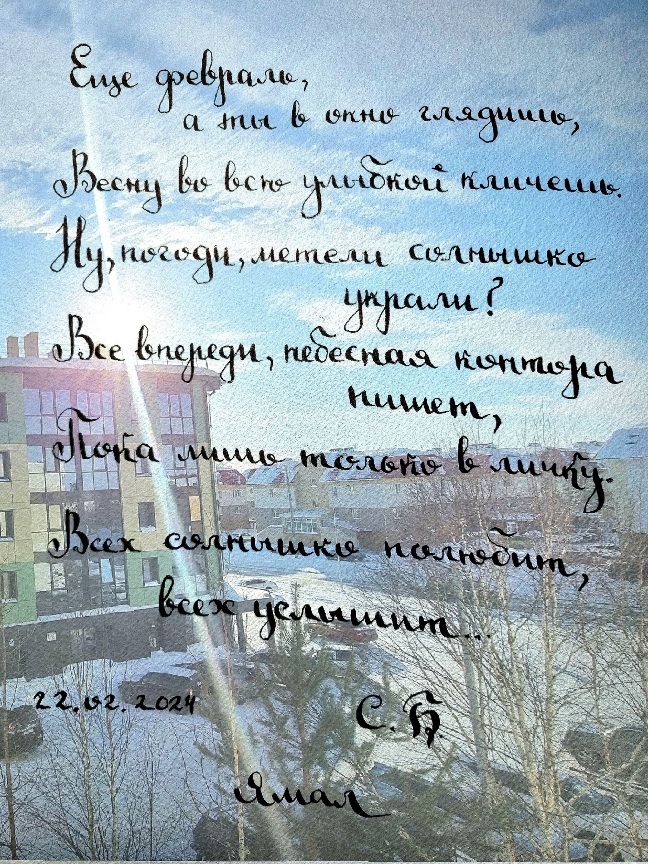 Еще февраль,
а ты в окно глядишь,
Весну во всю улыбкой кличешь.
Ну, погоди, метели солнышко
украли?
Все впереди, небесная контора
пишет,
Пока лишь только в личку.
Всех солнышко полюбит,
всех услышит...
22.02.2024
С.Б
Ямал